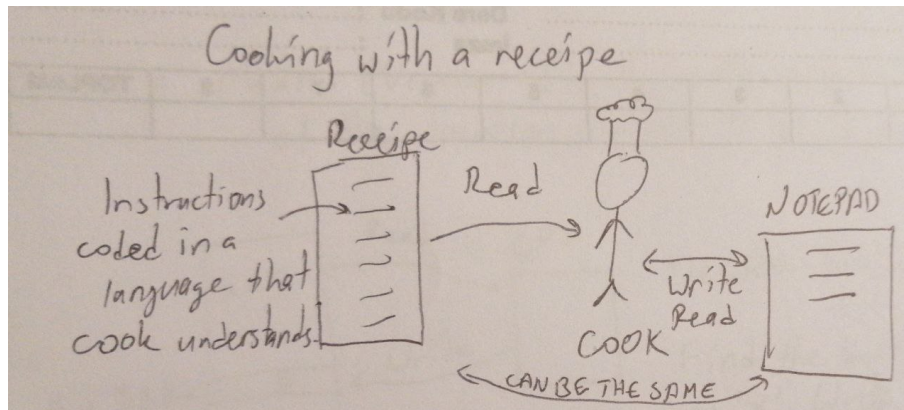 Cooking with a receipe
Receipe
Instructions
coded in a
language that
cook understands.
Read
COOK
Write
Read
NOTEPAD
CAN BE THE SAME